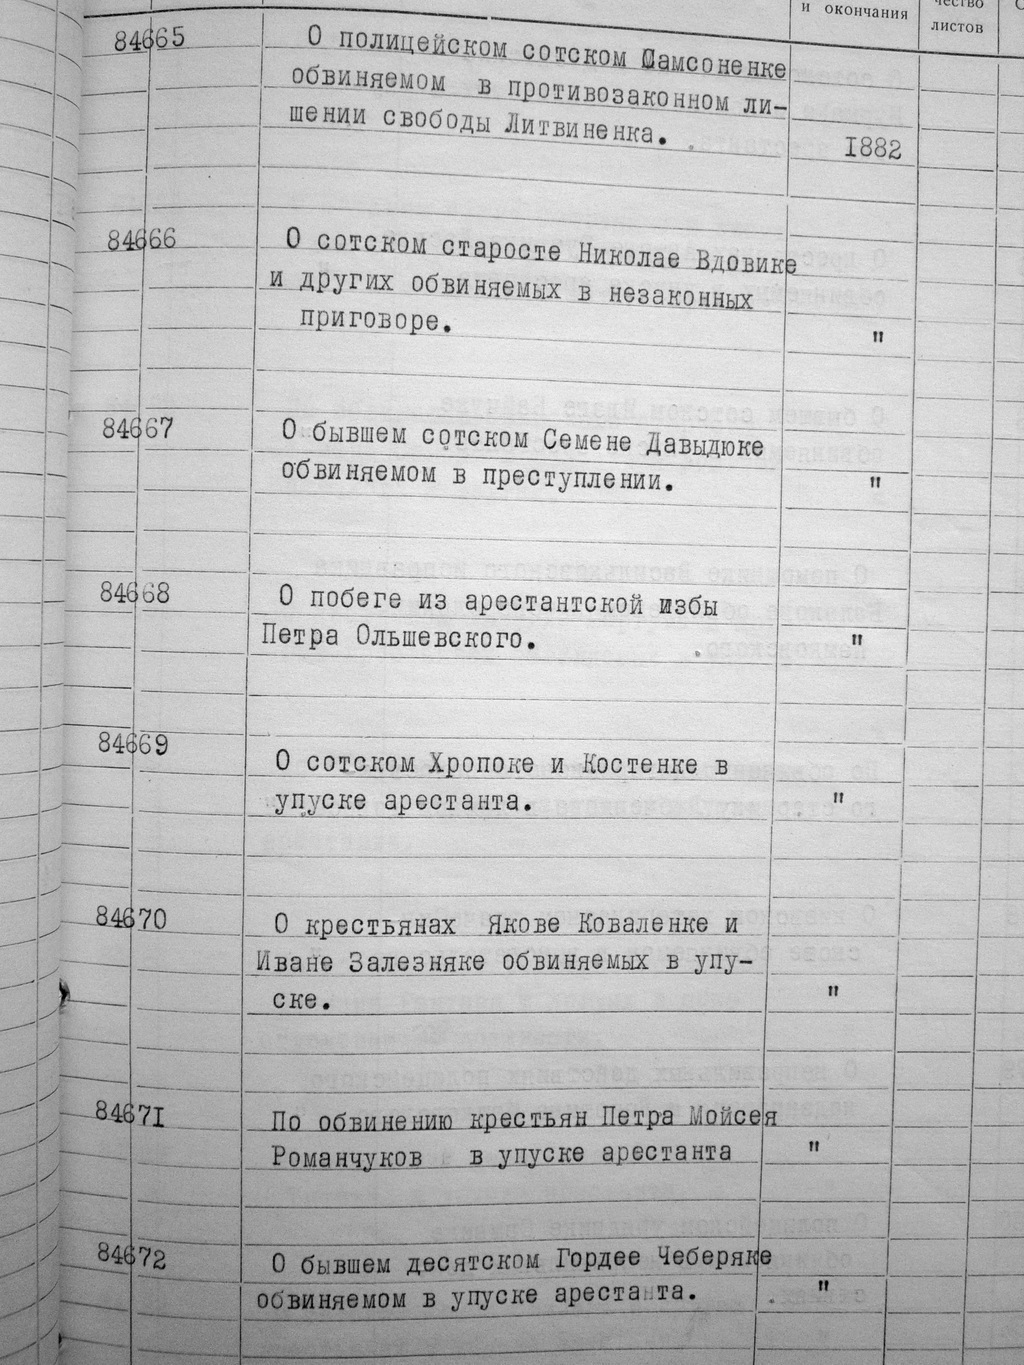 и окончания
чество
листов
84665
О полицейском сотском Самсоненке
обвиняемом в противозаконном ли-
шении свободы Литвиненка.
1882
84666
О сотском старосте Николае Вдовике
и других обвиняемых в незаконных
приговоре.
"
84667
О бывшем сотском Семене Давыдюке
обвиняемом в преступлении.
"
84668
О побеге из арестантской избы
Петра Ольшевского.
"
84669
О сотском Хропоке и Костенке в
упуске арестанта.
"
84670
О крестьянах Якове Коваленке и
Иване Залезняке обвиняемых в упу-
ске.
"
84671
По обвинению крестьян Петра Мойсея
Романчуков в упуске арестанта
"
84672
О бывшем десятском Гордее Чеберяке
обвиняемом в упуске арестанта.
"